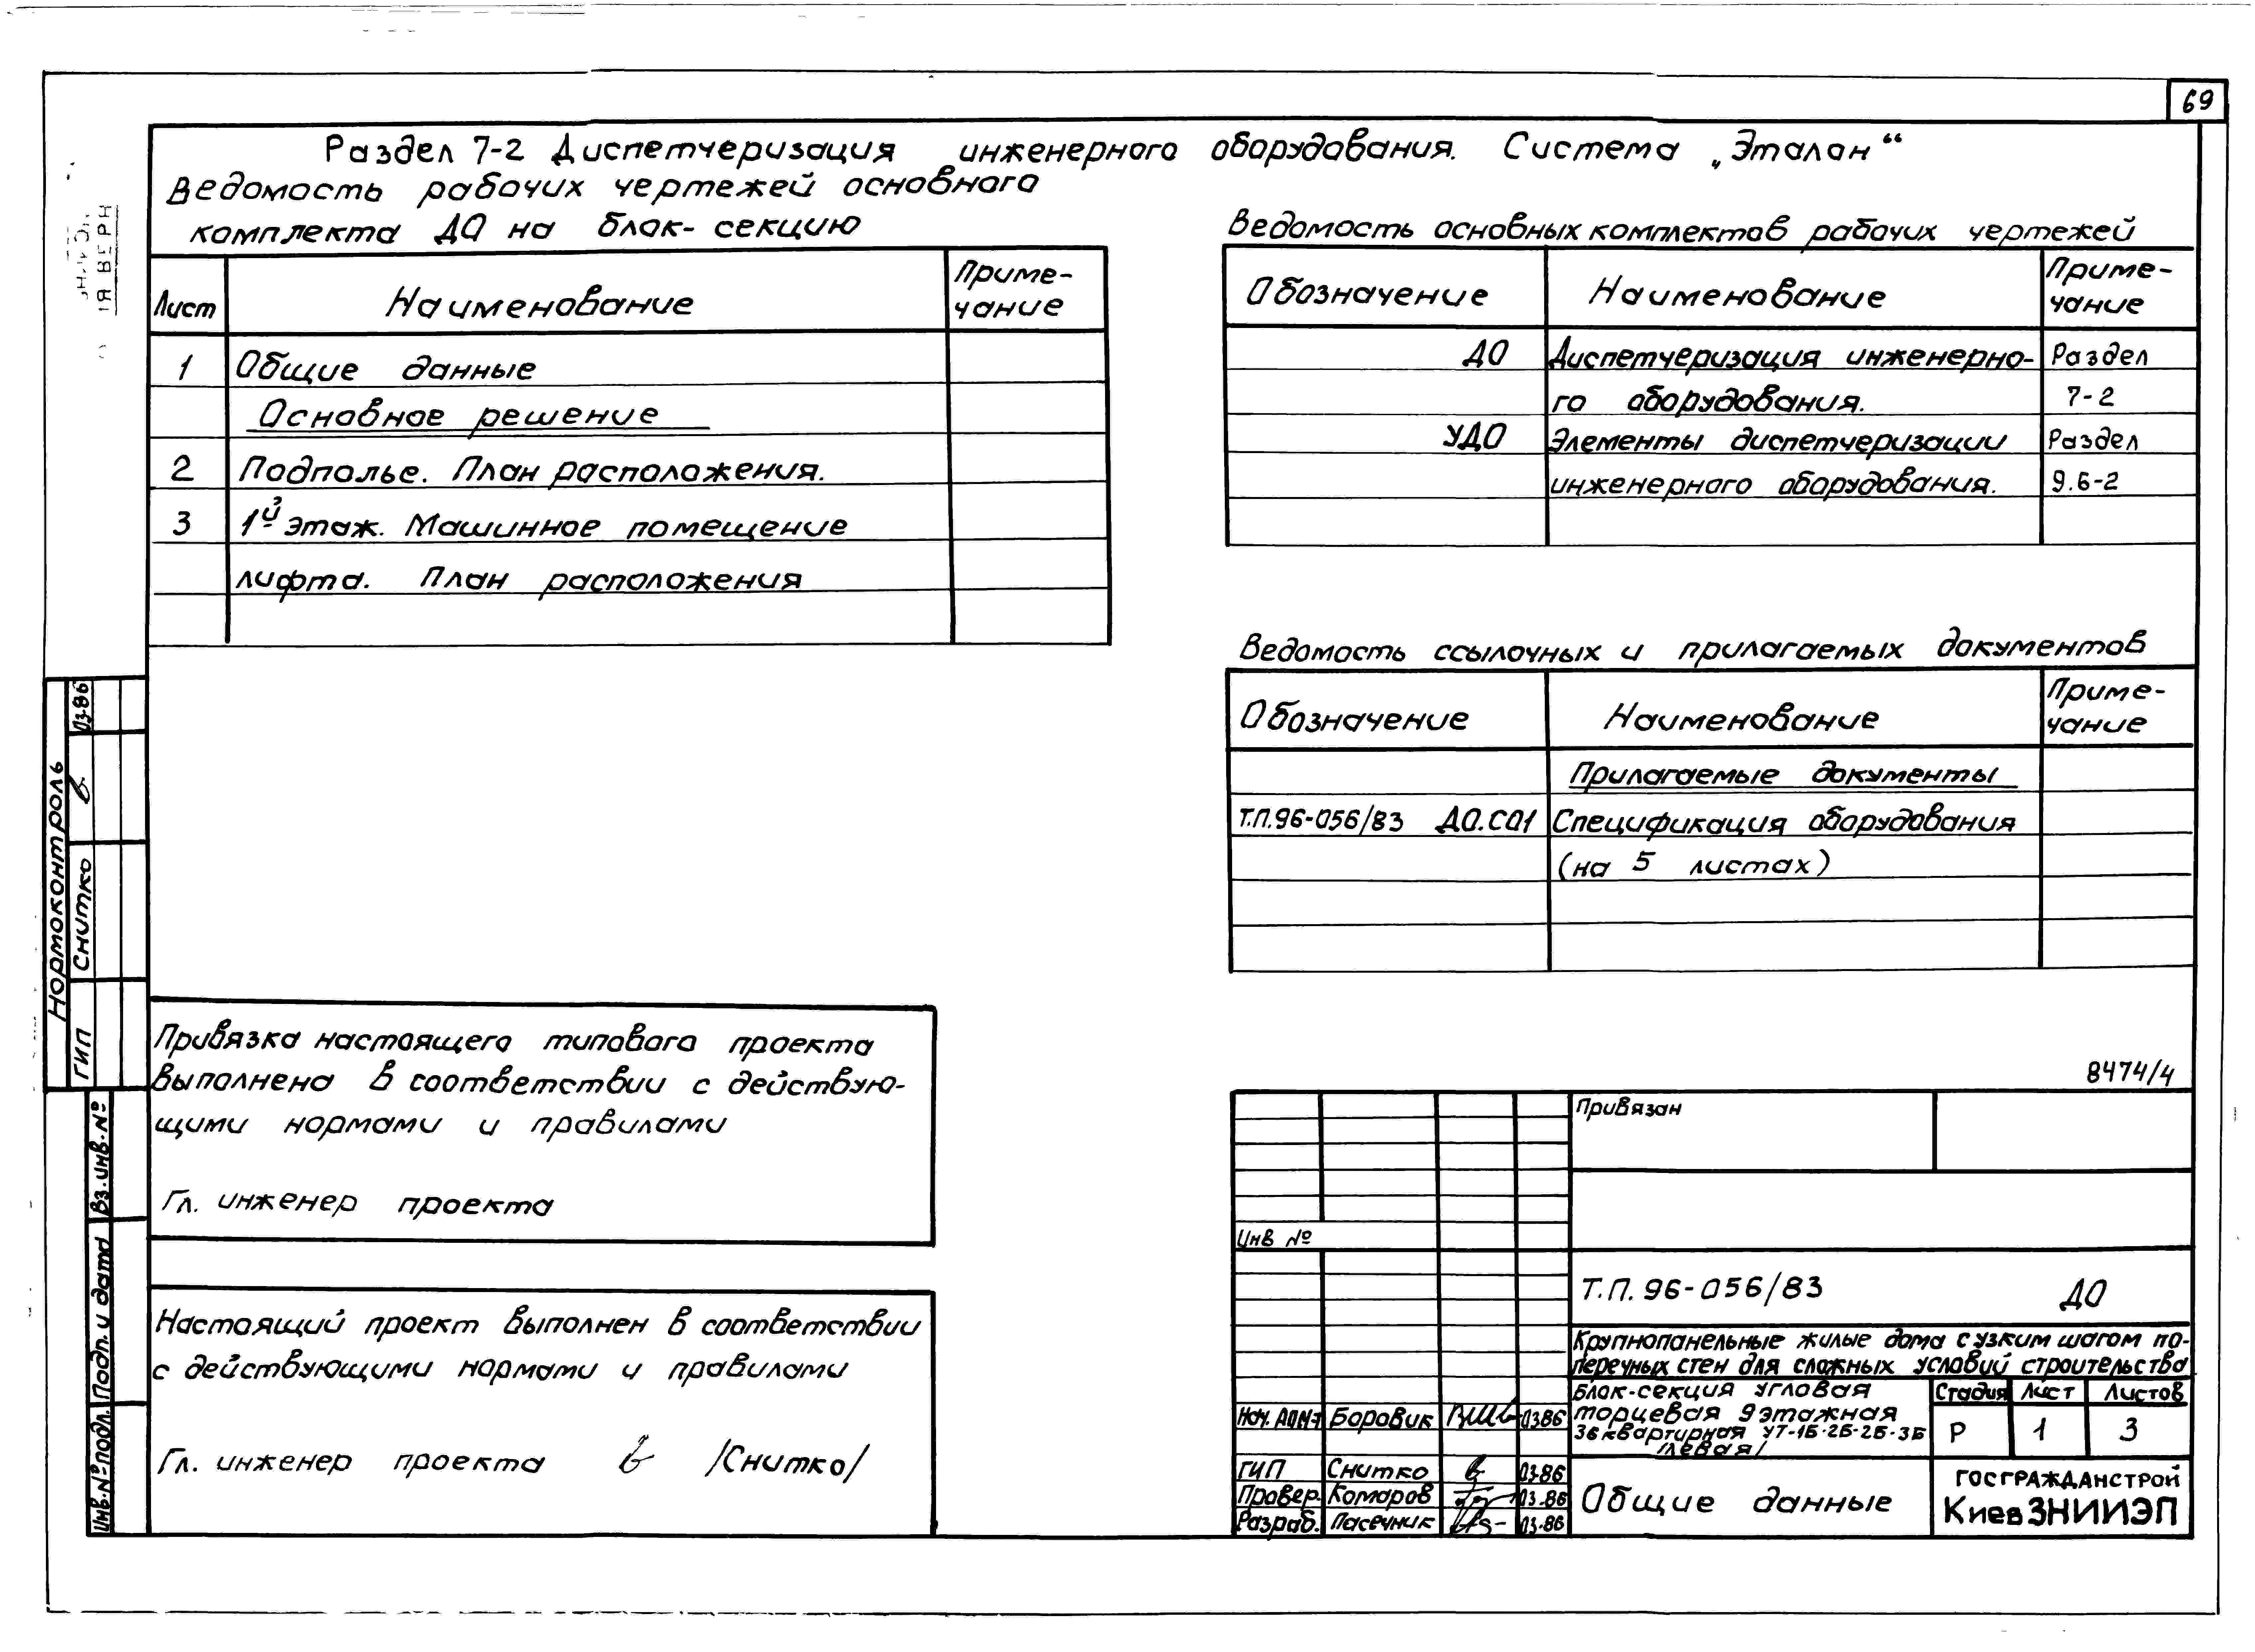 69
Раздел 7-2 Диспетчеризация инженерного оборудования. Система „Эталон“
Ведомость рабочих чертежей основного
комплекта ДО на блок-секцию
Лист Наименование Приме-
чание
1 Общие данные
Основное решение
2 Подполье. План расположения.
3 1й этаж. Машинное помещение
лифта. План расположения
Ведомость основных комплектов рабочих чертежей
Обозначение Наименование Приме-
чание
ДО Диспетчеризация инженерно- Раздел
го оборудования. 7-2
УДО Элементы диспетчеризации Раздел
инженерного оборудования. 9.6-2
Ведомость ссылочных и прилагаемых документов
Обозначение Наименование Приме-
чание
Прилагаемые документы
Т.П.96-056/83 ДО.СО1 Спецификация оборудования
(на 5 листах)
Привязка настоящего типового проекта
выполнена в соответствии с действую-
щими нормами и правилами
Гл. инженер проекта
Настоящий проект выполнен в соответствии
с действующими нормами и правилами
Гл. инженер проекта /Снитко/
Нормоконтроль
ГИП Снитко 03-86
Вз. инв. №
Подп. и дата
Инв. № подл.
8474/4
Привязан
Инв №
Т.П. 96-056/83 ДО
Крупнопанельные жилые дома с узким шагом по-
перечных стен для сложных условий строительства
Блок-секция угловая
торцевая 9этажная
36квартирная УТ-1Б-2Б-2Б-3Б
/левая/
Стадия Лист Листов
Р 1 3
Нач. Боровик 0386
ГИП Снитко 03-86
Провер. Комаров 03.86
Разраб. Пасечник 03-86
Общие данные
ГОСГРАЖДАНСТРОЙ
КиевЗНИИЭП